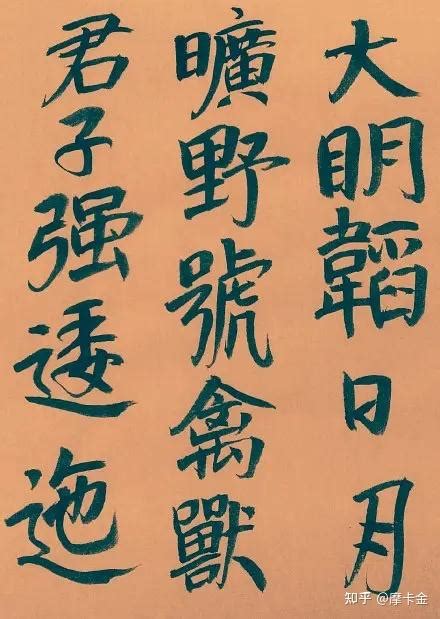 大明韜日月
曠野號禽獸
君子强逶迤
知乎 @摩卡金